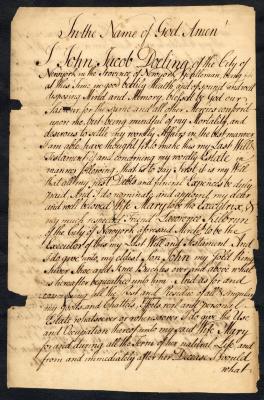 In the Name of God Amen
I John Jacob Oeling of the City of
Newyork in the Province of Newyork Gentleman, being
at this time in good bodily Health and of sound and well
disposing Mind and Memory, blessed be God our
for the same and other Mercies conferred
upon me but being mindful of my Mortality and
desirous to settle my worldly Affairs in the best manner
I am able have thought fit to make this my Last Will
Testament and concerning my worldly Estate in
manner following, that is to say First it is my Will
that all my just Debts and funeral Expences be duly
paid Item I do nominate and appoint my dear
and well beloved Wife Mary to be the Executrix &
my much respected Friend Lawrence
of the City of Newyork aforesaid to be the
Executor of this my Last Will and Testament And
I do give unto my eldest Son John my Gold Ring
Silver Shoe and Knee Buckles over and above what
is hereafter bequeathed unto him And as for and
concerning all the Rest and Residue of all & singular
my Goods and Chattles, Effects real and personal
Estate whatsoever or wheresoever I do give the Use
and Occupation thereof unto my said Wife Mary
for and during all the Term of her natural Life and
from and immediately after her Decease I would
what